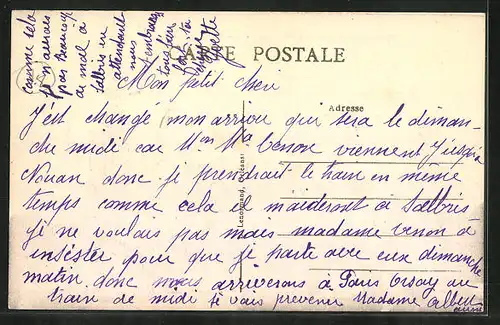 CARTE POSTALE
Adresse
Mon petit chéri
J'ai changé mon arrivé qui sera le diman-
che midi car Mon Ma benon viennent jusqu'a
Nouan donc je prendrait le train en même
temps comme cela ils m'aideront à Salbris
je ne voulais pas mais madame benon à
insister pour que je parte avec eux dimanche
matin. donc nous arriverons à Paris Orsay au
train de midi je vais prevenir Madame Albert
comme cela
je n'aurais
pas Beaucoup
de mal à
Salbris en
attendant
nous
t'embrassons
tous bien
fort ta
Yvette